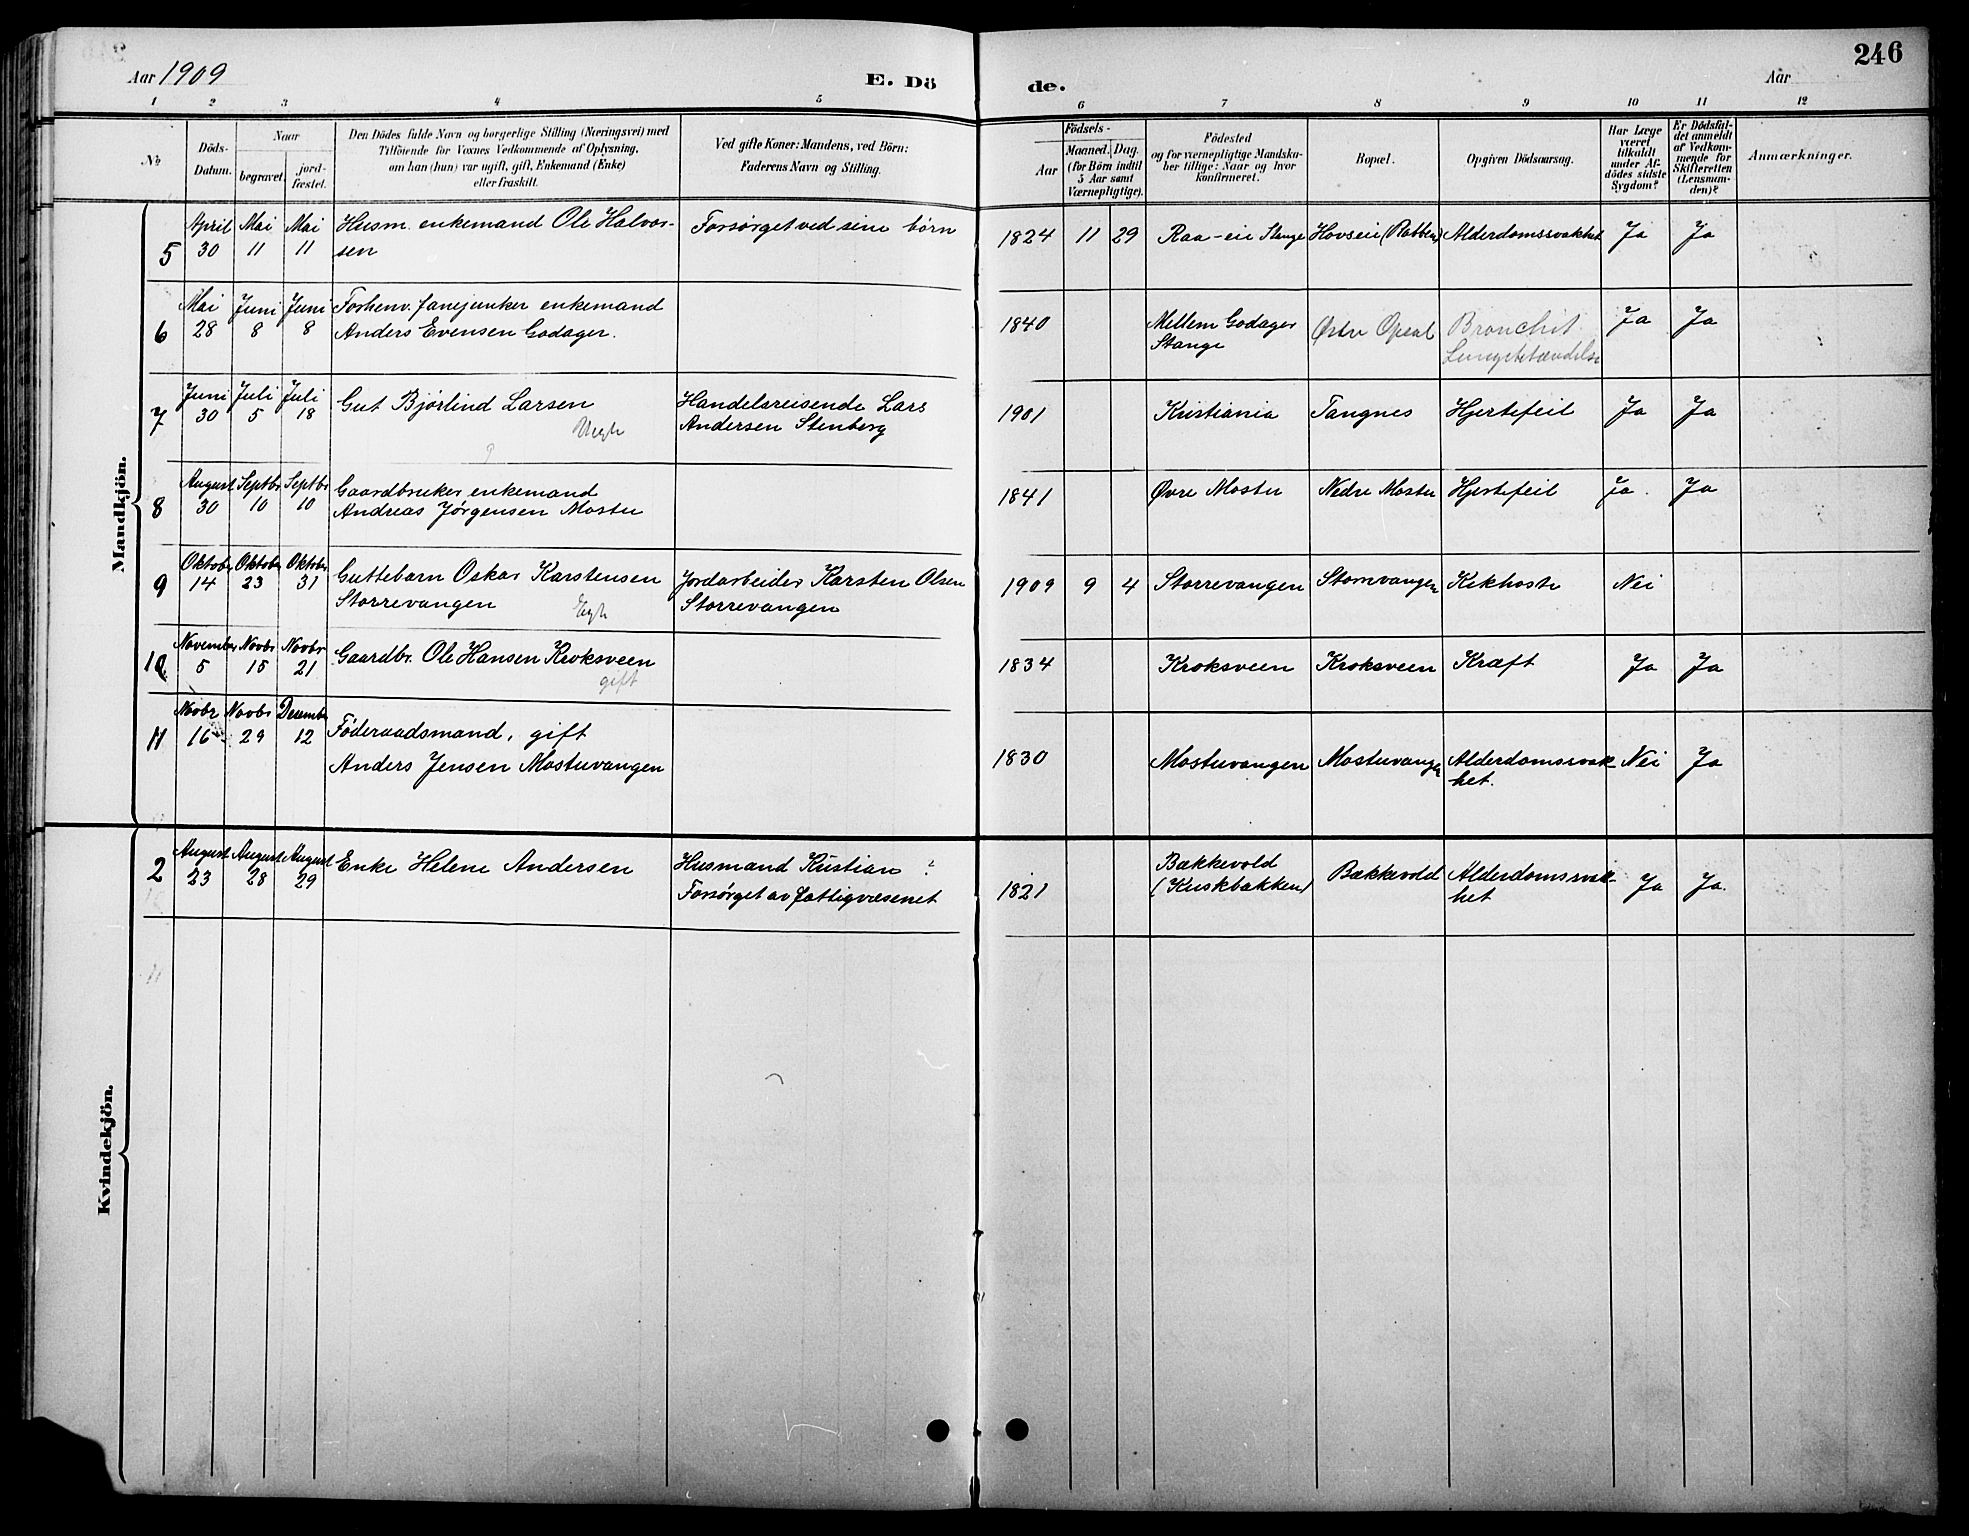 246
Aar 1909
E. Dö
de.
Aar
1 2 3 4 5 6 7 8 9 10 11 12
No
Döds-
Datum.
Naar
begravet.
jord-
fæstet.
Den Dödes fulde Navn og borgerlige Stilling (Næringsvei) med
Tilföiende for Voxnes Vedkommende af Oplysning,
om han (hun) var ugift, gift, Enkemand (Enke)
eller fraskilt.
Ved gifte Koner: Mandens, ved Börn:
Faderens Navn og Stilling.
Födsels-
Aar
Maaned. Dag.
(for Börn indtil
5 Aar samt
Værnepligtige).
Födested
og for værnepligtige Mandska-
ber tillige: Naar og hvor
konfirmeret.
Bopæl.
Opgiven Dödsaarsag.
Har Læge
været
tilkaldt
under Af-
dödes sidste
Sygdom?
Er Dödsfal-
det anmeldt
af Vedkom-
mende for
Skifteretten
(Lensman-
den)?
Anmærkninger.
Mandkjön.
5 April 30 Mai 11 Mai 11 Husm. enkemand Ole Halvor- Forsørget ved sine børn 1824 11 29 Raa-eie Stange Hovseie (Rabben) Alderdomssvakhet Ja Ja
sen
6 Mai 28 Juni 8 Juni 8 Forhenv. fanejunker enkemand 1840 Mellem Godager Østre Opsal Bronchit Ja Ja
Anders Evensen Godager. Stange Lungebetændelse
7 Juni 30 Juli 5 Juli 18 Gut Bjørlind Larsen Handelsreisende Lars 1901 Kristiania Tangnes Hjertefeil Ja Ja
Andersen Stenberg
8 August 30 Septbr 10 Septbr 10 Gaardbruker enkemand 1841 Øvre Mostu Nedre Mostu Hjertefeil Ja. Ja
Andreas Jørgensen Mostu
9 Oktober 14 Oktober 23 Oktober 31 Guttebarn Oskar Karstensen Jordarbeider Karsten Olsen 1909 9 4 Storrevangen Storrvangen Kikhoste Nei
Storrevangen Storrevangen
10 November 5 Novbr 15 Novbr 21 Gaardbr. Ole Hansen Kroksveen 1834 Kroksveen Kroksveen Kræft Ja Ja
gift
11 Novbr 16 Novbr 29 Desember 12 Föderaadsmand, gift 1830 Mostuvangen Mostuvangen Alderdomssvak- Nei Ja
Anders Jensen Mostuvangen het.
Kvindekjön.
2 August 23 August 28 August 29 Enke Helene Andersen Husmand Kristian ? 1821 Bækkevold Bækkevold Alderdomssvak- Ja Ja.
Forsørget av fattigvæsenet (Kuskbakken) het